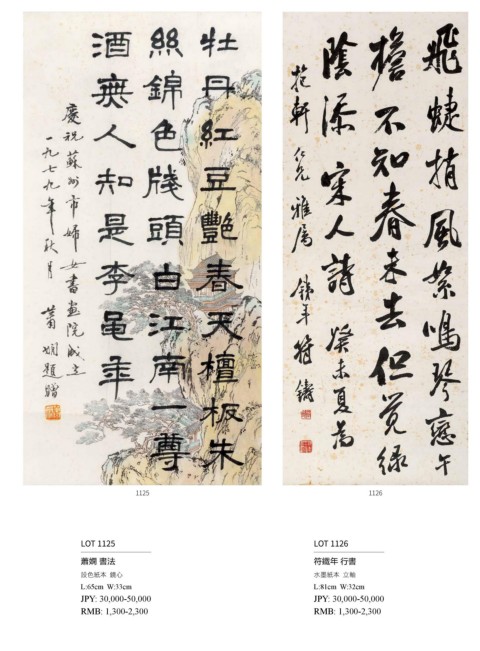 牡丹紅豆艷春天檀板朱
絲錦色牋頭白江南一尊
酒無人知是李龜年
慶祝蘇州市婦女書画院成立
一九七九年秋月 蕭嫻題贈
飛蜨捎風絮鳴琴午
檐不知春未去但觉緑
陰添 宋人詩 癸未夏為
軒仁兄雅屬 鐵年符鑄
1125
1126
LOT 1125
蕭嫻 書法
設色紙本 鏡心
L:65cm W:33cm
JPY: 30,000-50,000
RMB: 1,300-2,300
LOT 1126
符鐵年 行書
水墨紙本 立軸
L:81cm W:32cm
JPY: 30,000-50,000
RMB: 1,300-2,300